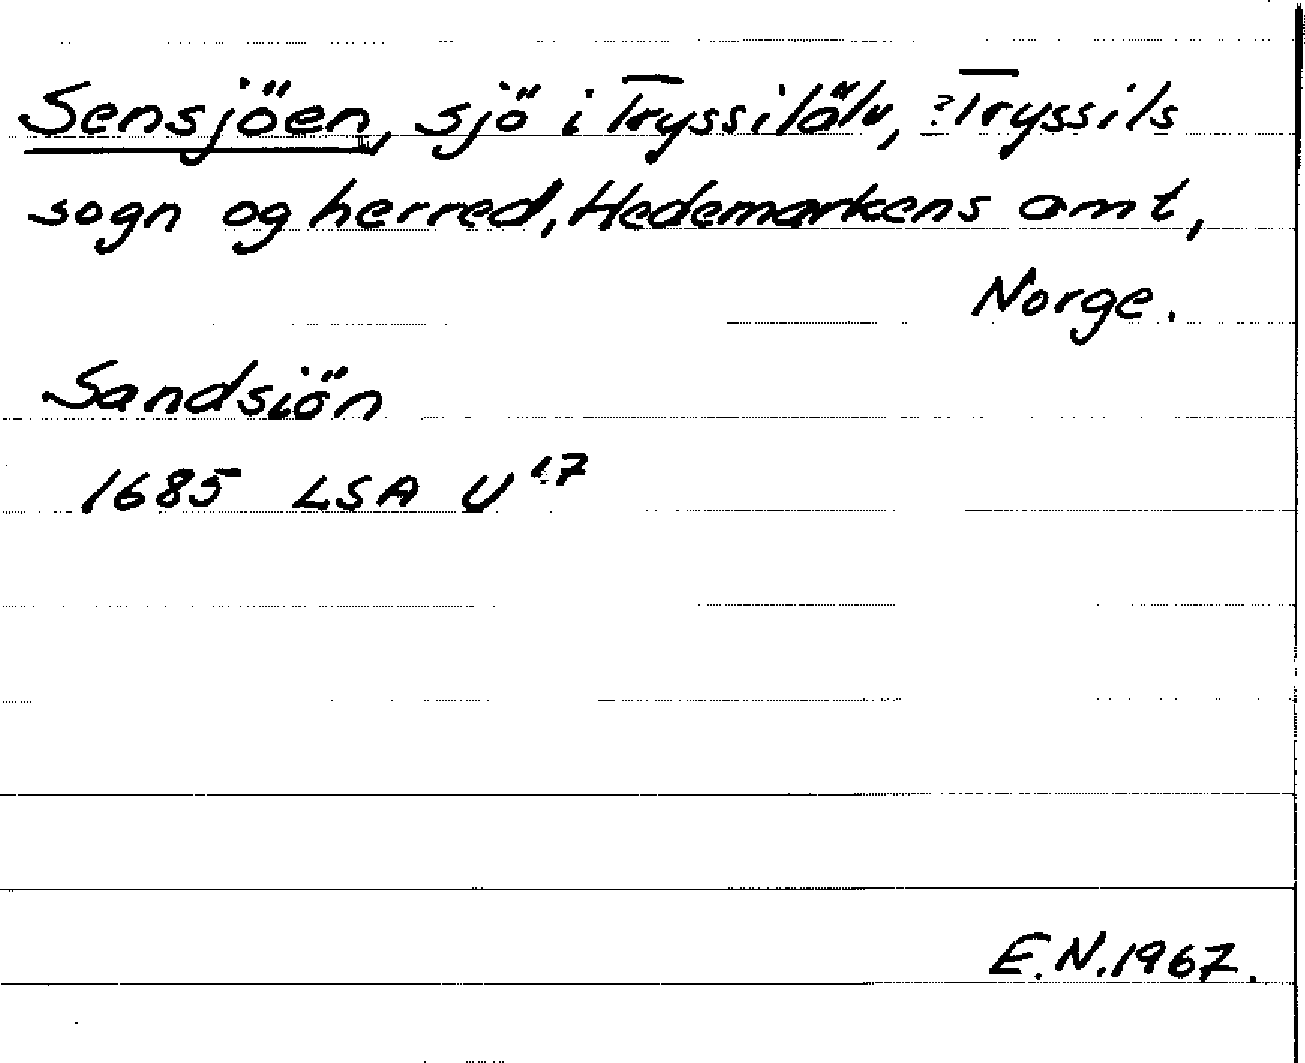 Sensjöen, sjö i Tryssilälv, ?Tryssils
sogn og herred, Hedemarkens amt,
Norge.
Sandsiön
1685 LSA U 17
E.N. 1967.